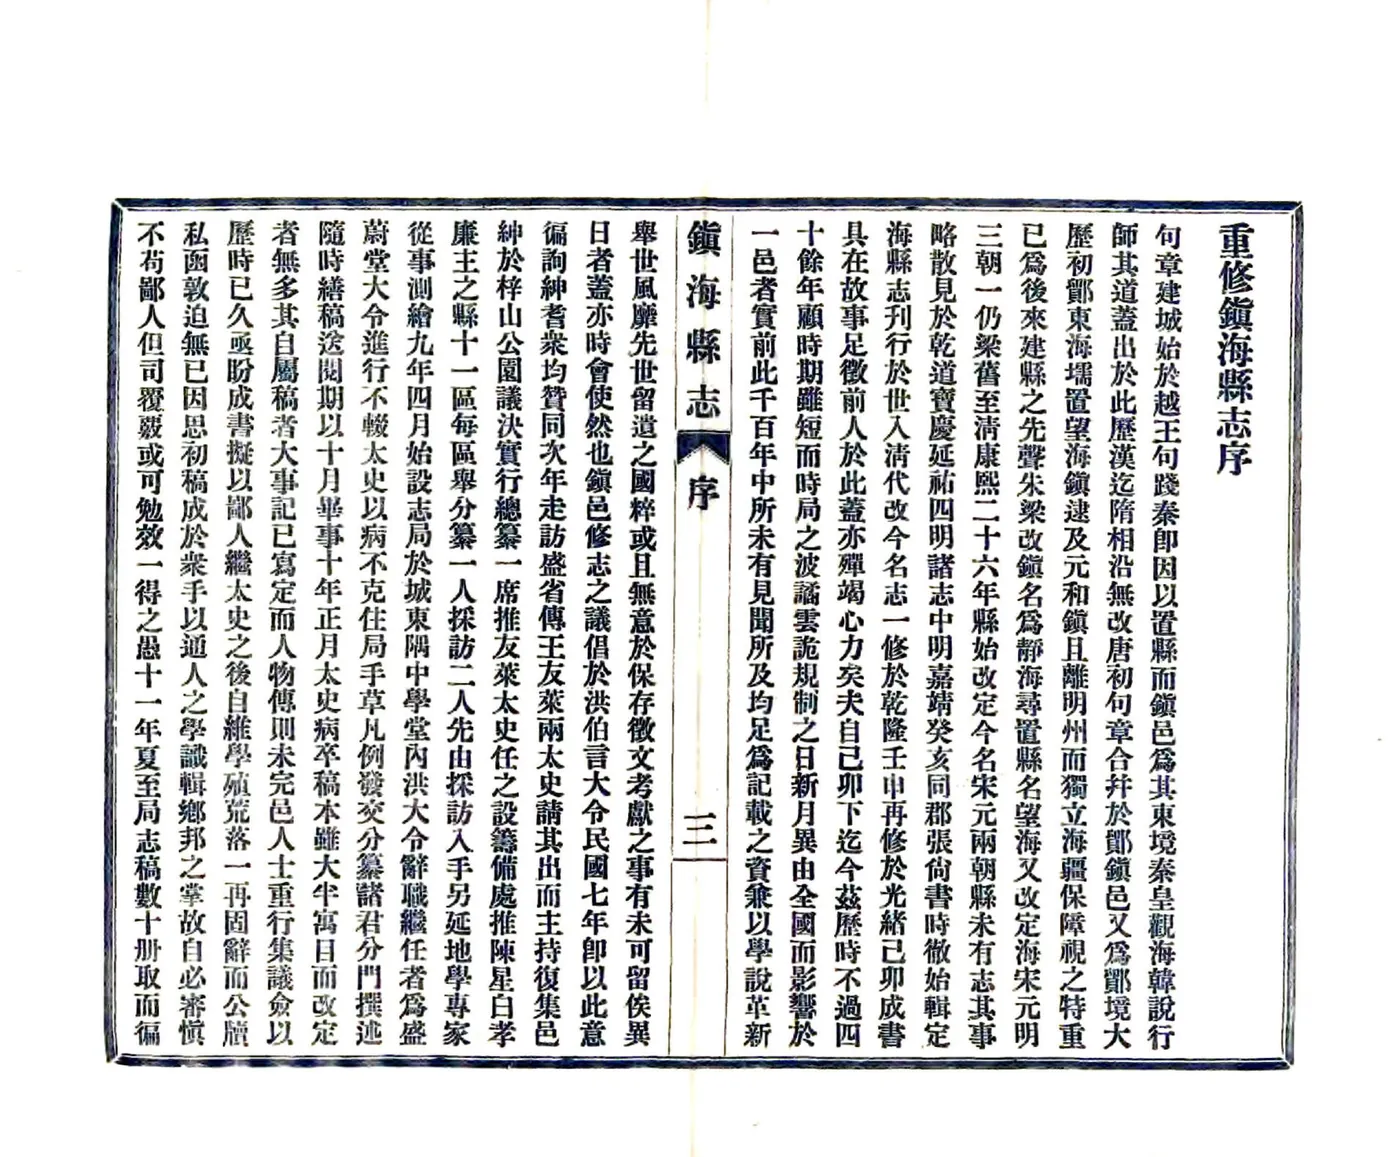 重修鎭海縣志序
句章建城始於越王句踐秦卽因以置縣而鎭邑爲其東境秦皇觀海韓說行
師其道蓋出於此歷漢迄隋相沿無改唐初句章合幷於鄮鎭邑又爲鄮境大
歷初鄮東海壖置望海鎭逮及元和鎭且離明州而獨立海疆保障視之特重
已爲後來建縣之先聲朱梁改鎭名爲靜海尋置縣名望海又改定海宋元明
三朝一仍梁舊至淸康熙二十六年縣始改定今名宋元兩朝縣未有志其事
略散見於乾道寶慶延祐四明諸志中明嘉靖癸亥同郡張尙書時徹始輯定
海縣志刊行於世入淸代改今名志一修於乾隆壬申再修於光緖己卯成書
具在故事足徵前人於此蓋亦殫竭心力矣夫自己卯下迄今茲歷時不過四
十餘年顧時期雖短而時局之波譎雲詭規制之日新月異由全國而影響於
一邑者實前此千百年中所未有見聞所及均足爲記載之資兼以學說革新
鎭海縣志
序
三
舉世風靡先世留遺之國粹或且無意於保存徵文考獻之事有未可留俟異
日者蓋亦時會使然也鎭邑修志之議倡於洪伯言大令民國七年卽以此意
徧詢紳耆衆均贊同次年走訪盛省傳王友萊兩太史請其出而主持復集邑
紳於梓山公園議決實行總纂一席推友萊太史任之設籌備處推陳星白孝
廉王之縣十一區每區舉分纂一人採訪二人先由採訪入手另延地學專家
從事測繪九年四月始設志局於城東隅中學堂內洪大令辭職繼任者爲盛
蔚堂大令進行不輟太史以病不克住局手草凡例發交分纂諸君分門撰述
隨時繕稿送閱期以十月畢事十年正月太史病卒稿本雖大半寓目而改定
者無多其自屬稿者大事記已寫定而人物傳則未完邑人士重行集議僉以
歷時已久亟盼成書擬以鄙人繼太史之後自維學殖荒落一再固辭而公牘
私函敦迫無已因思初稿成於衆手以通人之學識輯鄕邦之掌故自必審愼
不苟鄙人但司覆覈或可勉效一得之愚十一年夏至局志稿數十册取而徧